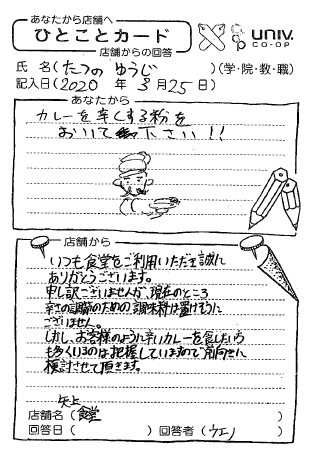 あなたから店舗へ
ひとことカード
店舗からの回答
UNIV.
CO-OP
氏 名(たつの ゆうじ)(学・院・教・職)
記入日(2020 年 3月25日)
あなたから
カレーを辛くする粉を
おいて下さい!!
店舗から
いつも食堂をご利用いただき誠に
ありがとうございます。
申し訳ございませんが、現在のところ
辛さの調節のための調味料は置けそうに
ございません。
しかし、お客様のように辛いカレーを食したい方
も多くいるのは把握していますので前向きに
検討させて頂きます。
矢上
店舗名(食堂)
回答日( )回答者(ウエノ)